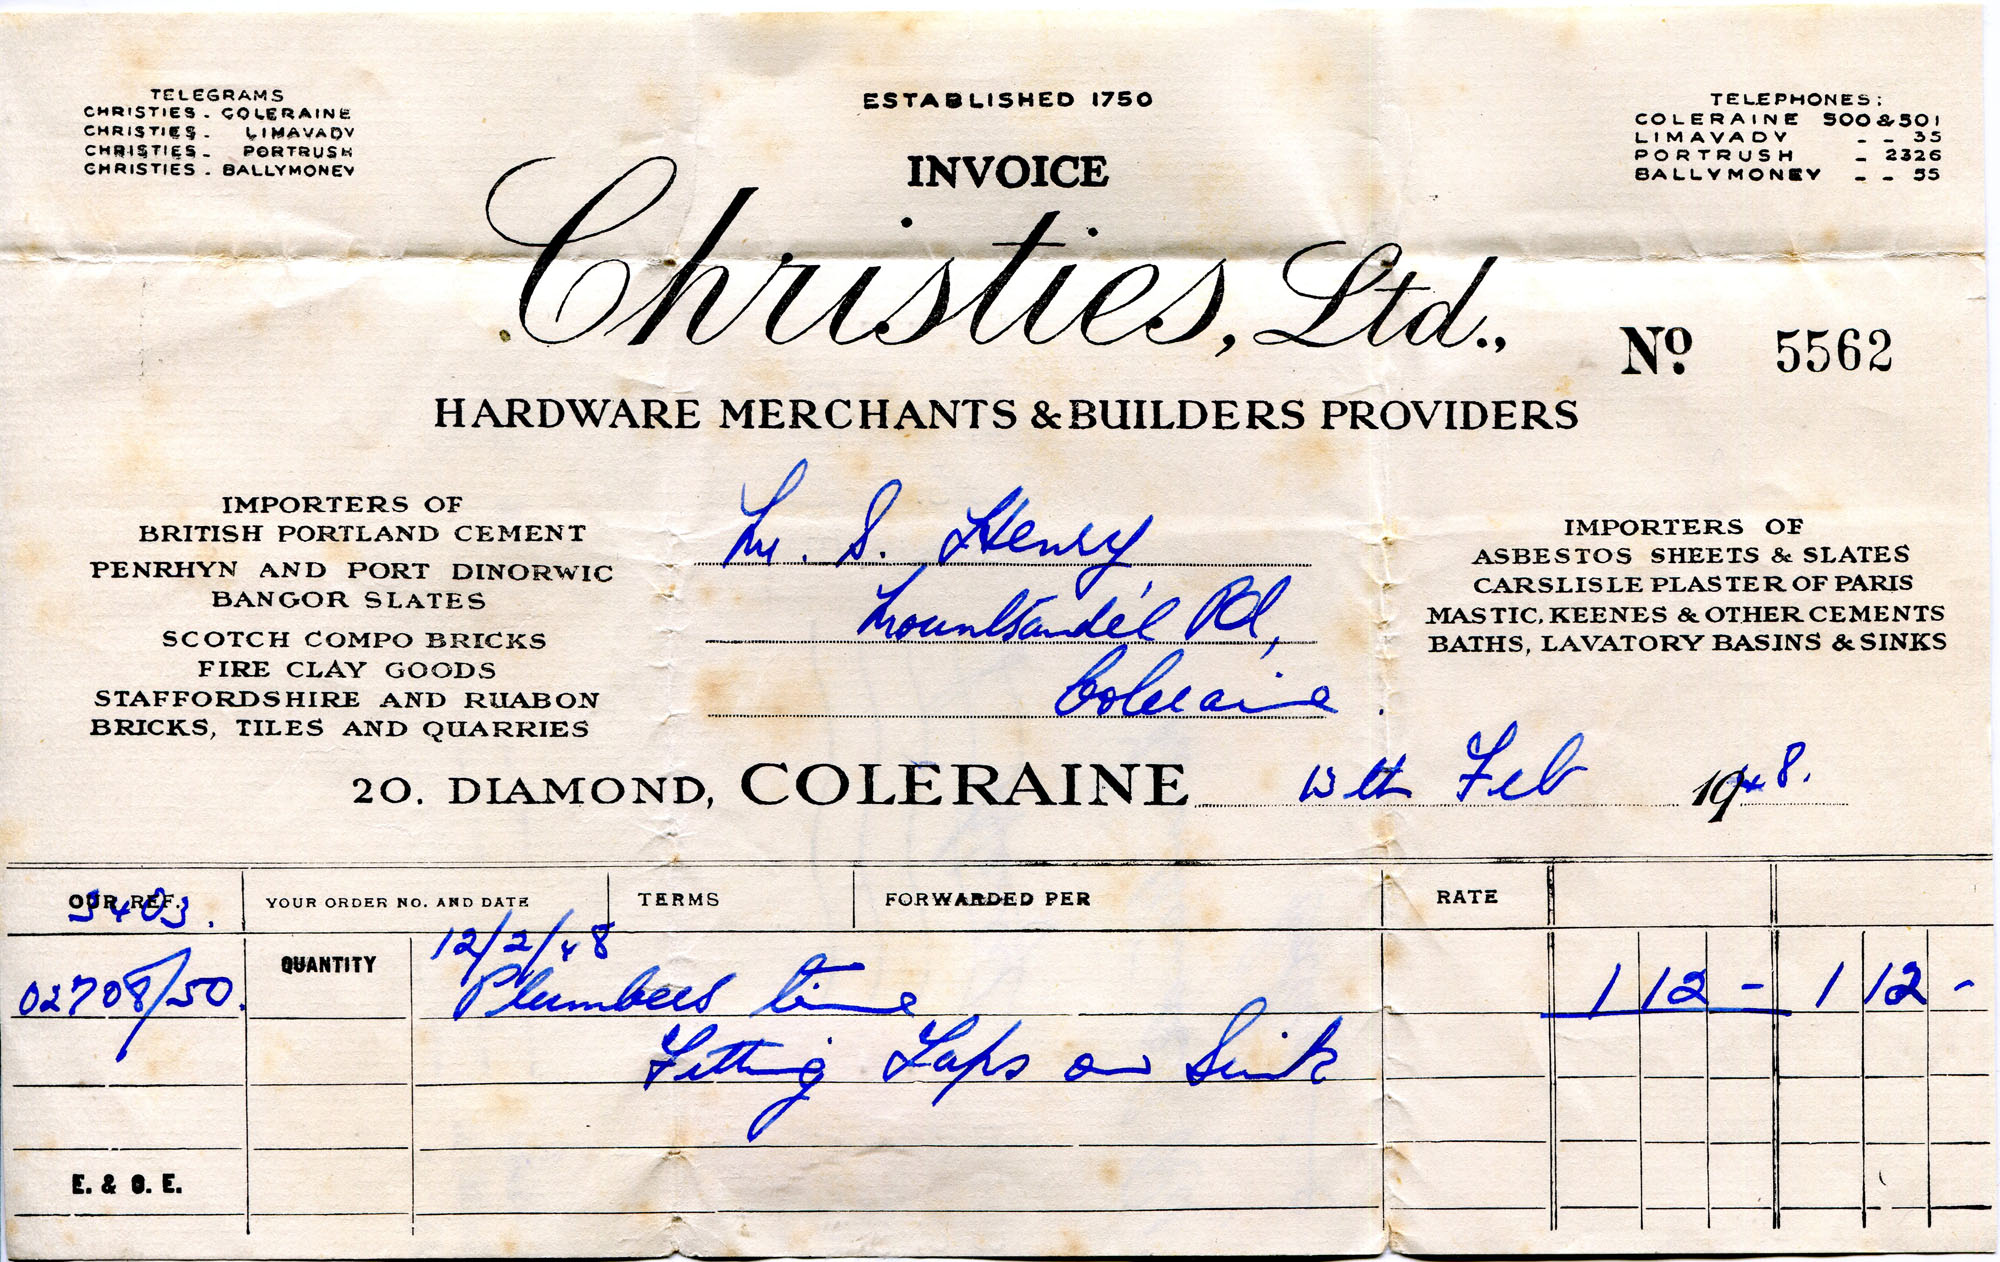 TELEGRAMS
CHRISTIES. COLERAINE
CHRISTIES. LIMAVADY
CHRISTIES. PORTRUSH
CHRISTIES. BALLYMONEY
ESTABLISHED 1750
INVOICE
TELEPHONES:
COLERAINE 500 & 501
LIMAVADY - - 35
PORTRUSH - 2326
BALLYMONEY - - 55
Christies, Ltd.,
No 5562
HARDWARE MERCHANTS & BUILDERS PROVIDERS
IMPORTERS OF
BRITISH PORTLAND CEMENT
PENRHYN AND PORT DINORWIC
BANGOR SLATES
SCOTCH COMPO BRICKS
FIRE CLAY GOODS
STAFFORDSHIRE AND RUABON
BRICKS, TILES AND QUARRIES
Mr. S. Henry,
Mountsandel Rd,
Coleraine.
IMPORTERS OF
ASBESTOS SHEETS & SLATES
CARSLISLE PLASTER OF PARIS
MASTIC, KEENES & OTHER CEMENTS
BATHS, LAVATORY BASINS & SINKS
20. DIAMOND, COLERAINE 13th Feb 1948.
OUR REF. YOUR ORDER NO. AND DATE TERMS FORWARDED PER RATE
3403.
QUANTITY 12/2/48
02708/50. Plumbers time 1 12 - 1 12 -
Fitting Taps on Sink
E. & O. E.